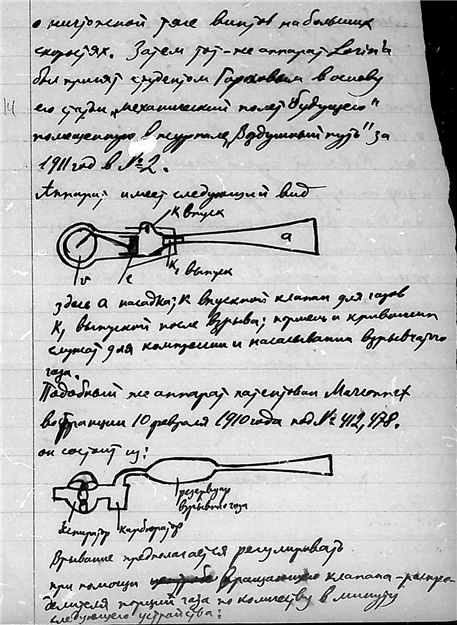 о ничтожной тяге винтов на больших
скоростях. Затем тот-же аппарат Lorin'a
был принят студентом Гороховым в основу
14
его статьи „механический полет будущего"
помещенную в журнале „Воздушный путь" за
1911 год в № 2.
Аппарат имеет следующий вид
К впуск
a
K, выпуск
здесь а насадка; К впускной клапан для газов
К, выпускной после взрыва; поршень и кривошип
служат для компрессии и насасывания взрывчатого
газа.
Подобный же аппарат патентован Marconnet
во Франции 10 февраля 1910 года под № 412,478.
он состоит из:
резервуар
взрывного газа
аспиратор карбюратор
Взрывание предполагается регулировать
при помощи вращающего клапана-распре-
делителя порций газа по количеству в минуту
следующего устройства: